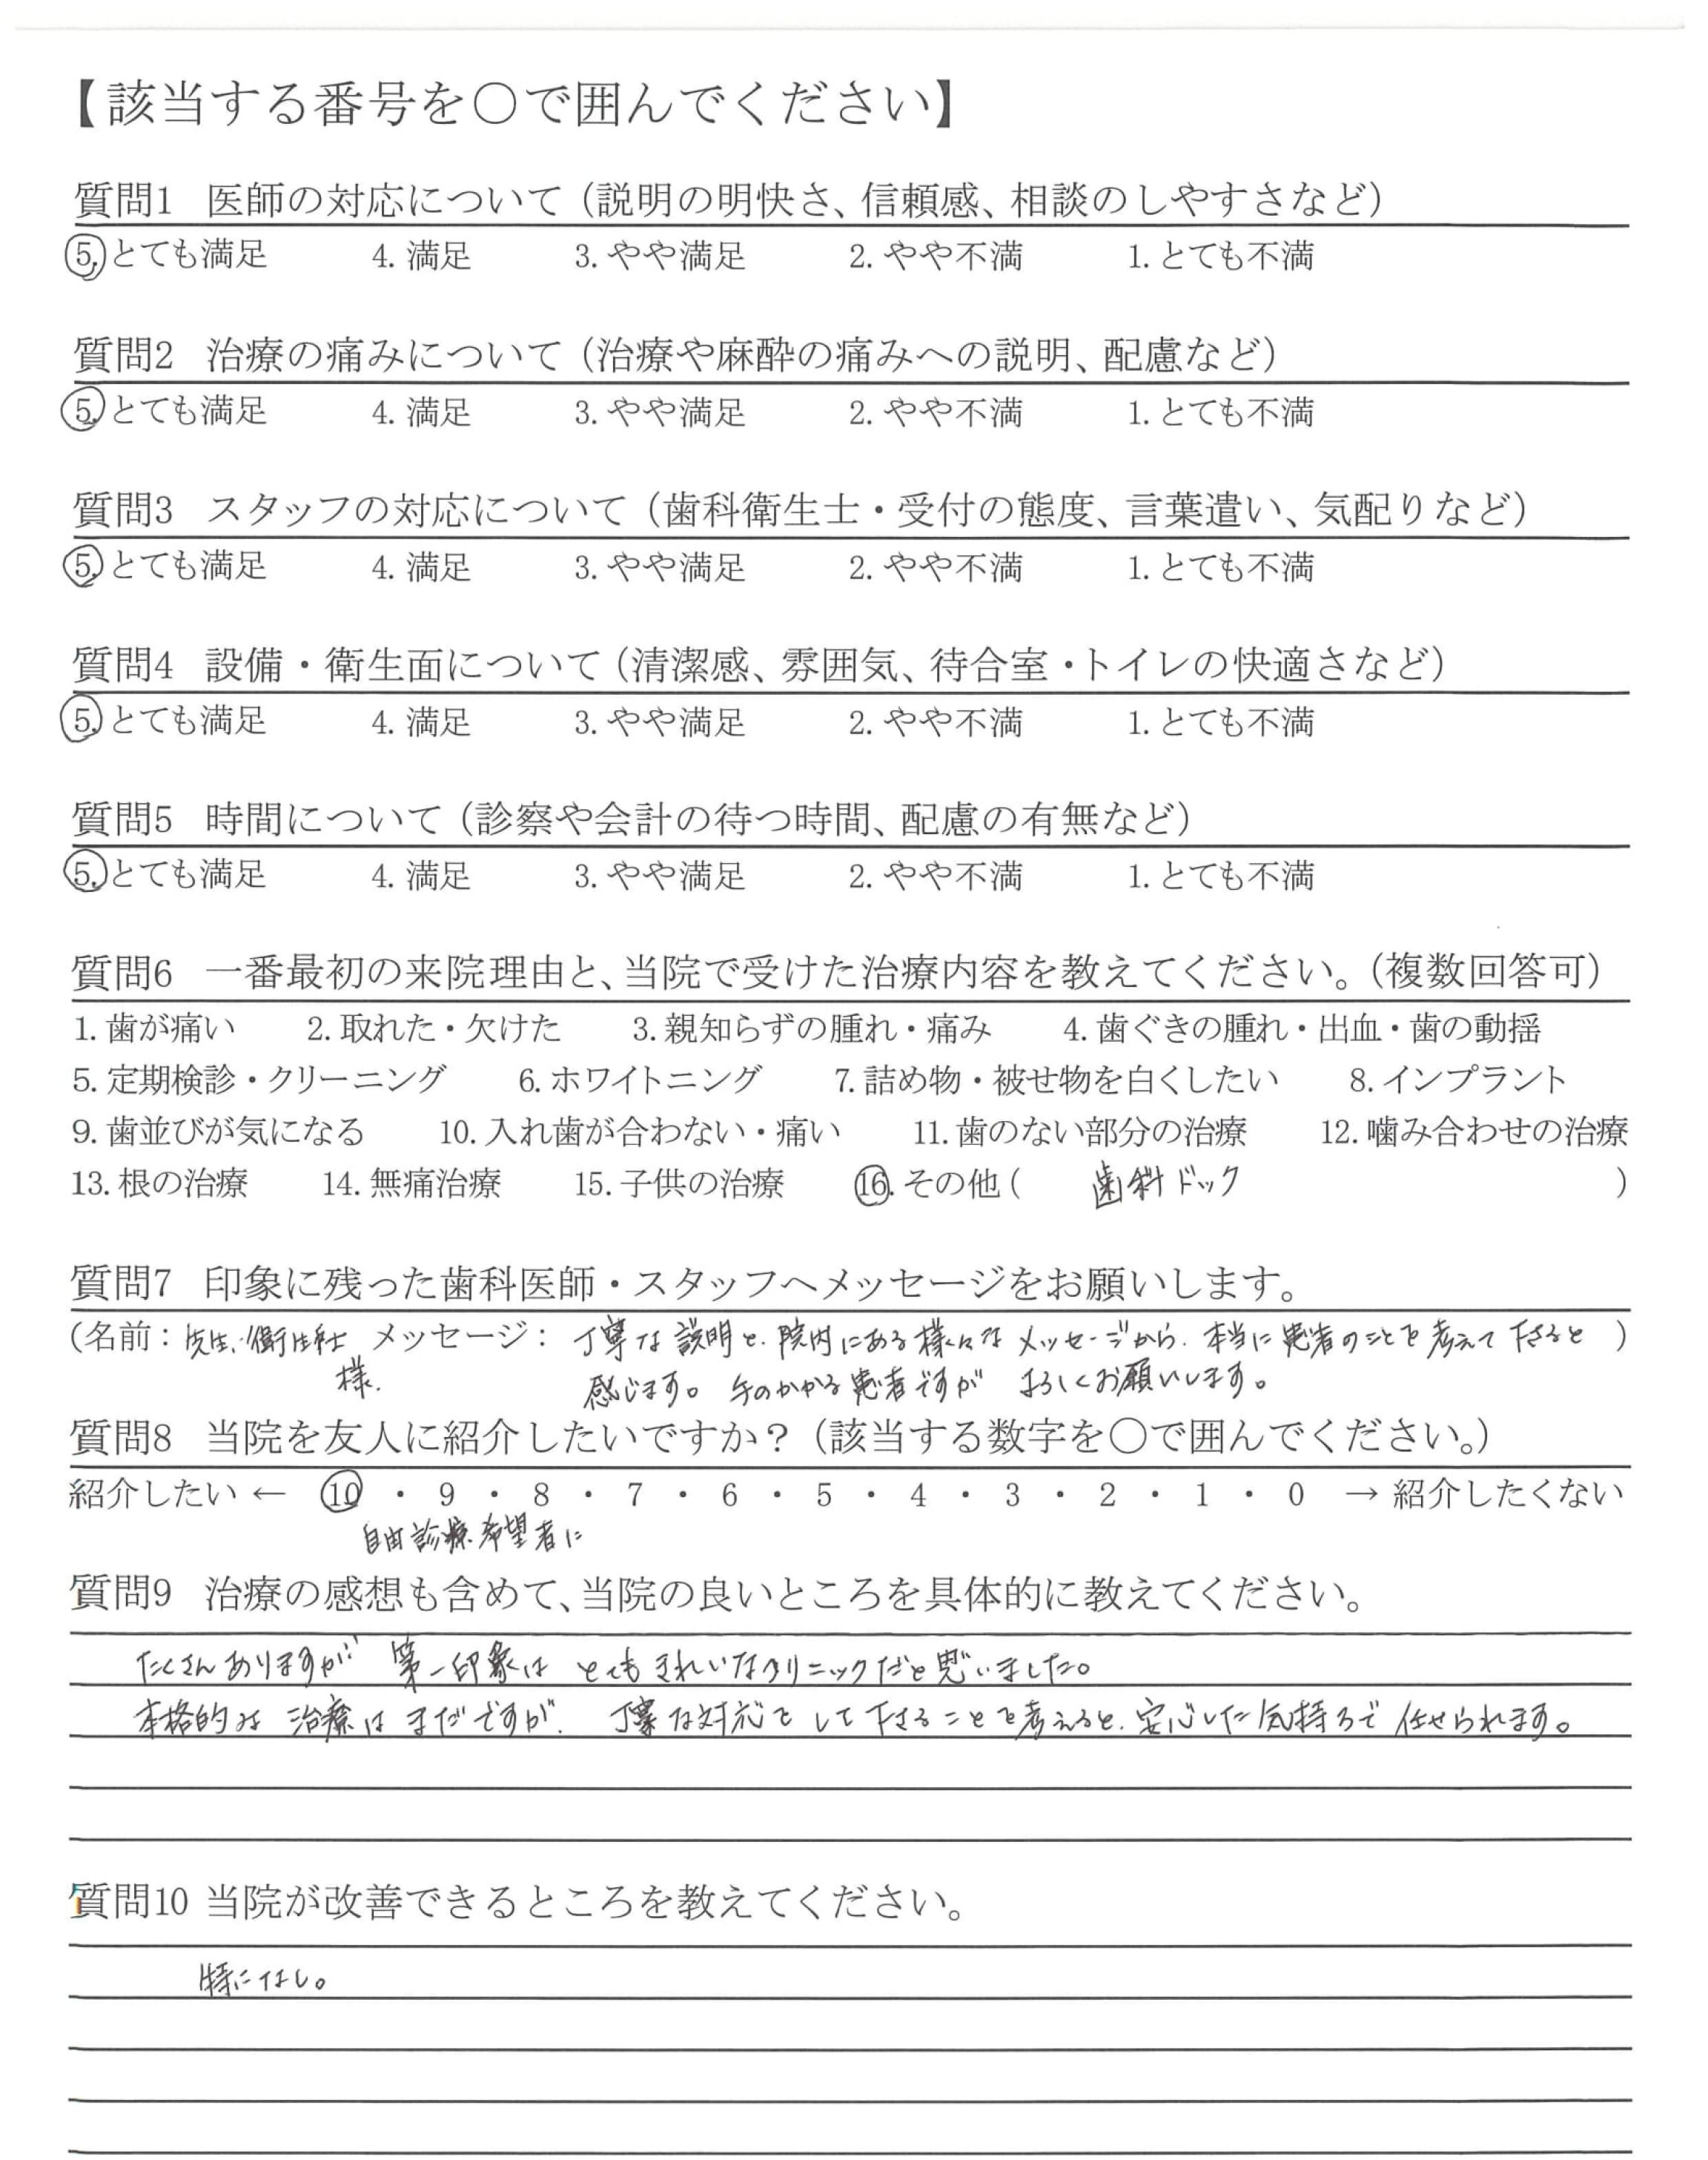 【該当する番号を〇で囲んでください】
質問1 医師の対応について（説明の明快さ、信頼感、相談のしやすさなど）
5. とても満足 4. 満足 3. やや満足 2. やや不満 1. とても不満
質問2 治療の痛みについて（治療や麻酔の痛みへの説明、配慮など）
5. とても満足 4. 満足 3. やや満足 2. やや不満 1. とても不満
質問3 スタッフの対応について（歯科衛生士・受付の態度、言葉遣い、気配りなど）
5. とても満足 4. 満足 3. やや満足 2. やや不満 1. とても不満
質問4 設備・衛生面について（清潔感、雰囲気、待合室・トイレの快適さなど）
5. とても満足 4. 満足 3. やや満足 2. やや不満 1. とても不満
質問5 時間について（診察や会計の待つ時間、配慮の有無など）
5. とても満足 4. 満足 3. やや満足 2. やや不満 1. とても不満
質問6 一番最初の来院理由と、当院で受けた治療内容を教えてください。（複数回答可）
1. 歯が痛い 2. 取れた・欠けた 3. 親知らずの腫れ・痛み 4. 歯ぐきの腫れ・出血・歯の動揺
5. 定期検診・クリーニング 6. ホワイトニング 7. 詰め物・被せ物を白くしたい 8. インプラント
9. 歯並びが気になる 10. 入れ歯が合わない・痛い 11. 歯のない部分の治療 12. 噛み合わせの治療
13. 根の治療 14. 無痛治療 15. 子供の治療 16. その他（ 歯科ドック ）
質問7 印象に残った歯科医師・スタッフへメッセージをお願いします。
（名前：先生、衛生士 メッセージ： 丁寧な説明と、院内にある様々なメッセージから、本当に患者のことを考えて下さると ）
様、 感じます。 手のかかる患者ですが よろしくお願いします。
質問8 当院を友人に紹介したいですか？（該当する数字を〇で囲んでください。）
紹介したい ← 10 ・ 9 ・ 8 ・ 7 ・ 6 ・ 5 ・ 4 ・ 3 ・ 2 ・ 1 ・ 0 → 紹介したくない
自由診療希望者に
質問9 治療の感想も含めて、当院の良いところを具体的に教えてください。
たくさんありますが 第一印象は とてもきれいなクリニックだと思いました。
本格的な 治療は まだですが、 丁寧な対応を して下さることを考えると、安心した気持ちで 任せられます。
質問10 当院が改善できるところを教えてください。
特になし。